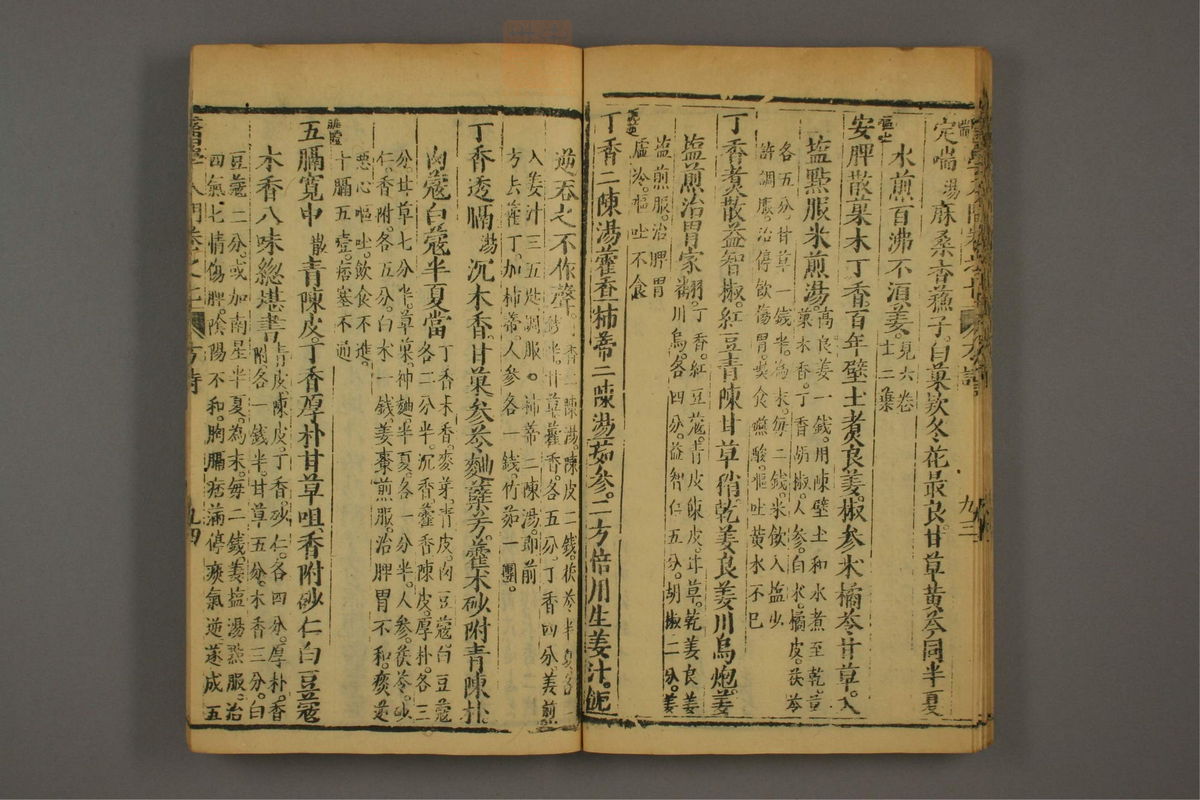 喘
定喘湯麻桑杏蘇子白菓款冬花最良甘草黃芩同半夏
水煎百沸不湏姜見六卷
士二葉
嘔吐
安脾散菓木丁香百年壁土煮良姜椒參朮橘苓甘草入
塩點服米煎湯高良姜一錢用陳壁土和水煮至乾
菓木香丁香胡椒人參白朮橘皮茯苓
各五分甘草一錢半為末每二錢米飲入塩少
許調服治停飲傷胃喫食醋酸嘔吐黃水不已
丁香煮散益智椒紅豆青陳甘草稍乾姜良姜川烏炮姜
塩煎治胃家翻丁香紅豆蔻青皮陳皮甘草乾姜良姜
川烏各四分益智仁五分胡椒二分姜
塩煎服治脾胃
虛冷嘔吐不食
丁香二陳湯藿香柿蒂二陳湯茹參二方倍用生姜汁
逆吞之不作聲
入姜汁三五匙調服柿蒂二陳湯即前
方去藿丁加柿蒂人參各一錢竹茹一團
丁香透膈湯沉木香甘菓參苓麯蘗芳藿朮砂附青陳朴
肉蔻白蔻半夏當丁香木香麥芽青皮肉豆蔻白豆蔻
各二分半沉香藿香陳皮厚朴各三
分甘草七分半草菓神麯半夏各一分半人參茯苓砂
仁香附各五分白朮一錢姜棗煎服治脾胃不和痰逆
惡心嘔吐飲食不進
十膈五壹痞塞不通
五膈寬中散青陳皮丁香厚朴甘草咀香附砂仁白豆蔻
木香八味總堪書青皮陳皮丁香砂仁各四分厚朴香
附各一錢半甘草五分木香三分白
豆蔻二分或加南星半夏為末每二錢姜塩湯點服治
四氣七情傷脾陰陽不和胸膈痞滿停痰氣逆遂成五
九四